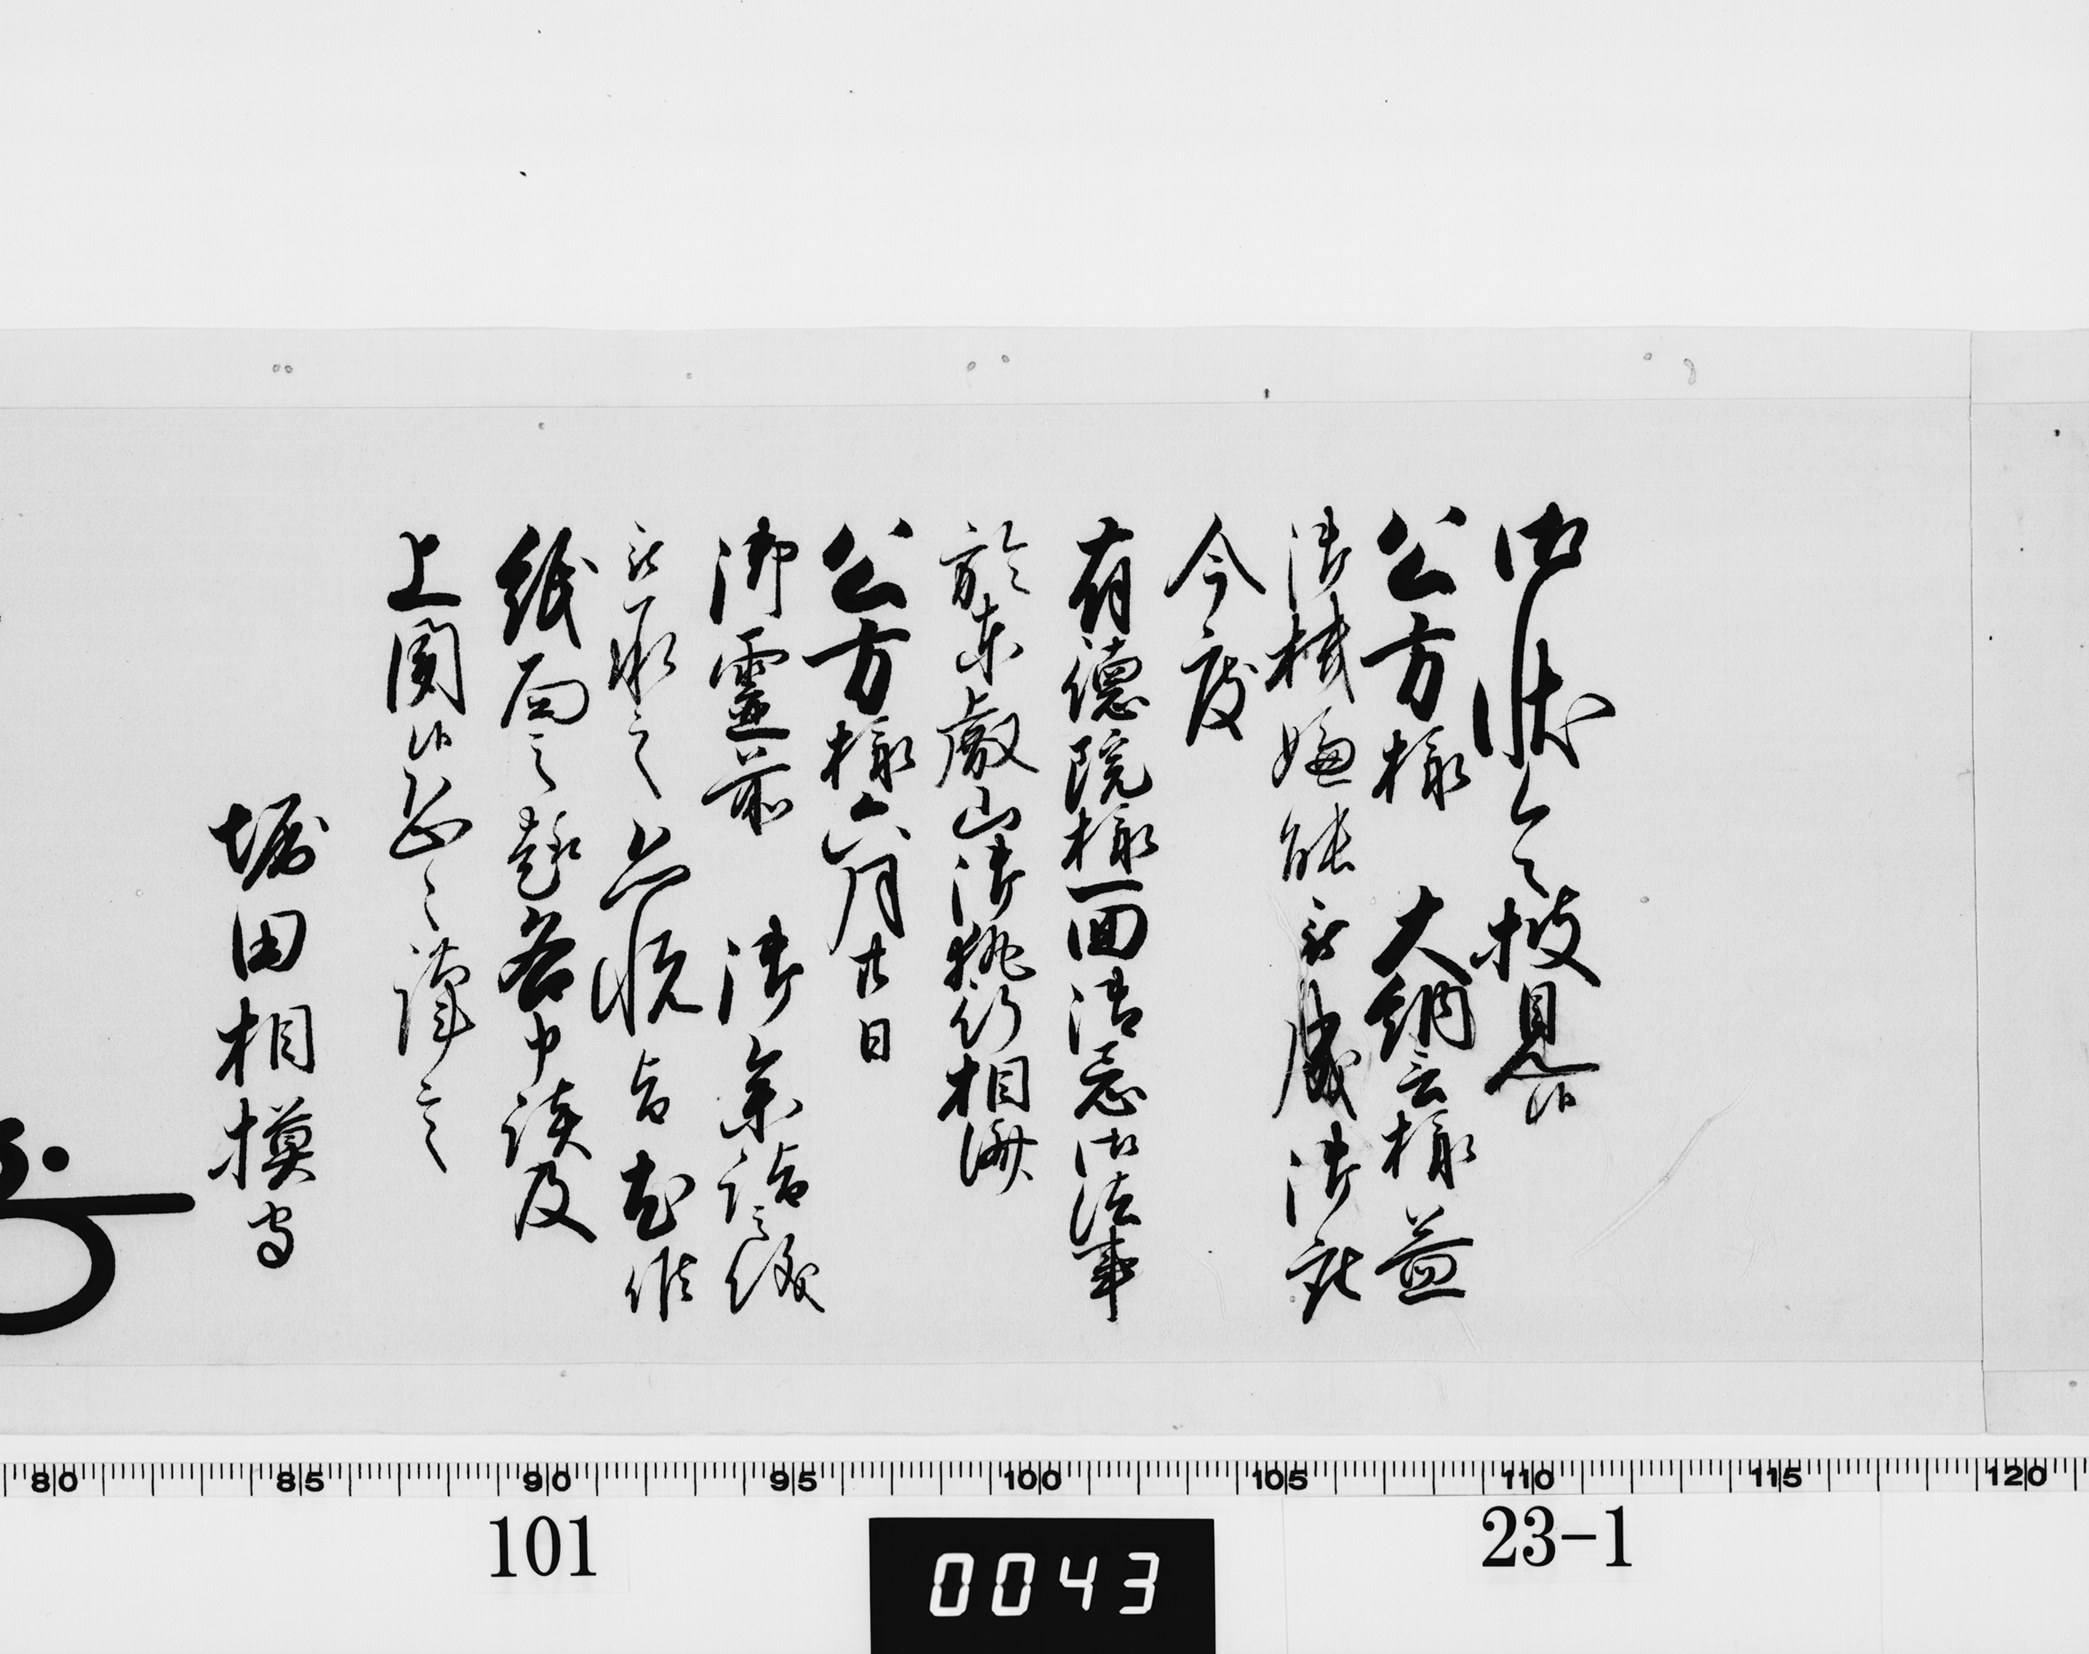 御状令披見候
公方様 大納言様益
御機嫌能被成御座
今度
有徳院様一回御忌御法事
於東叡山御執行相済
公方様六月廿日
御霊前 御参詣之儀
被承之恐悦旨尤候
紙面之趣各申談及
上聞候恐々謹言
堀田相模守
80 85 90 95 100 105 110 115 120
101
0043
23-1